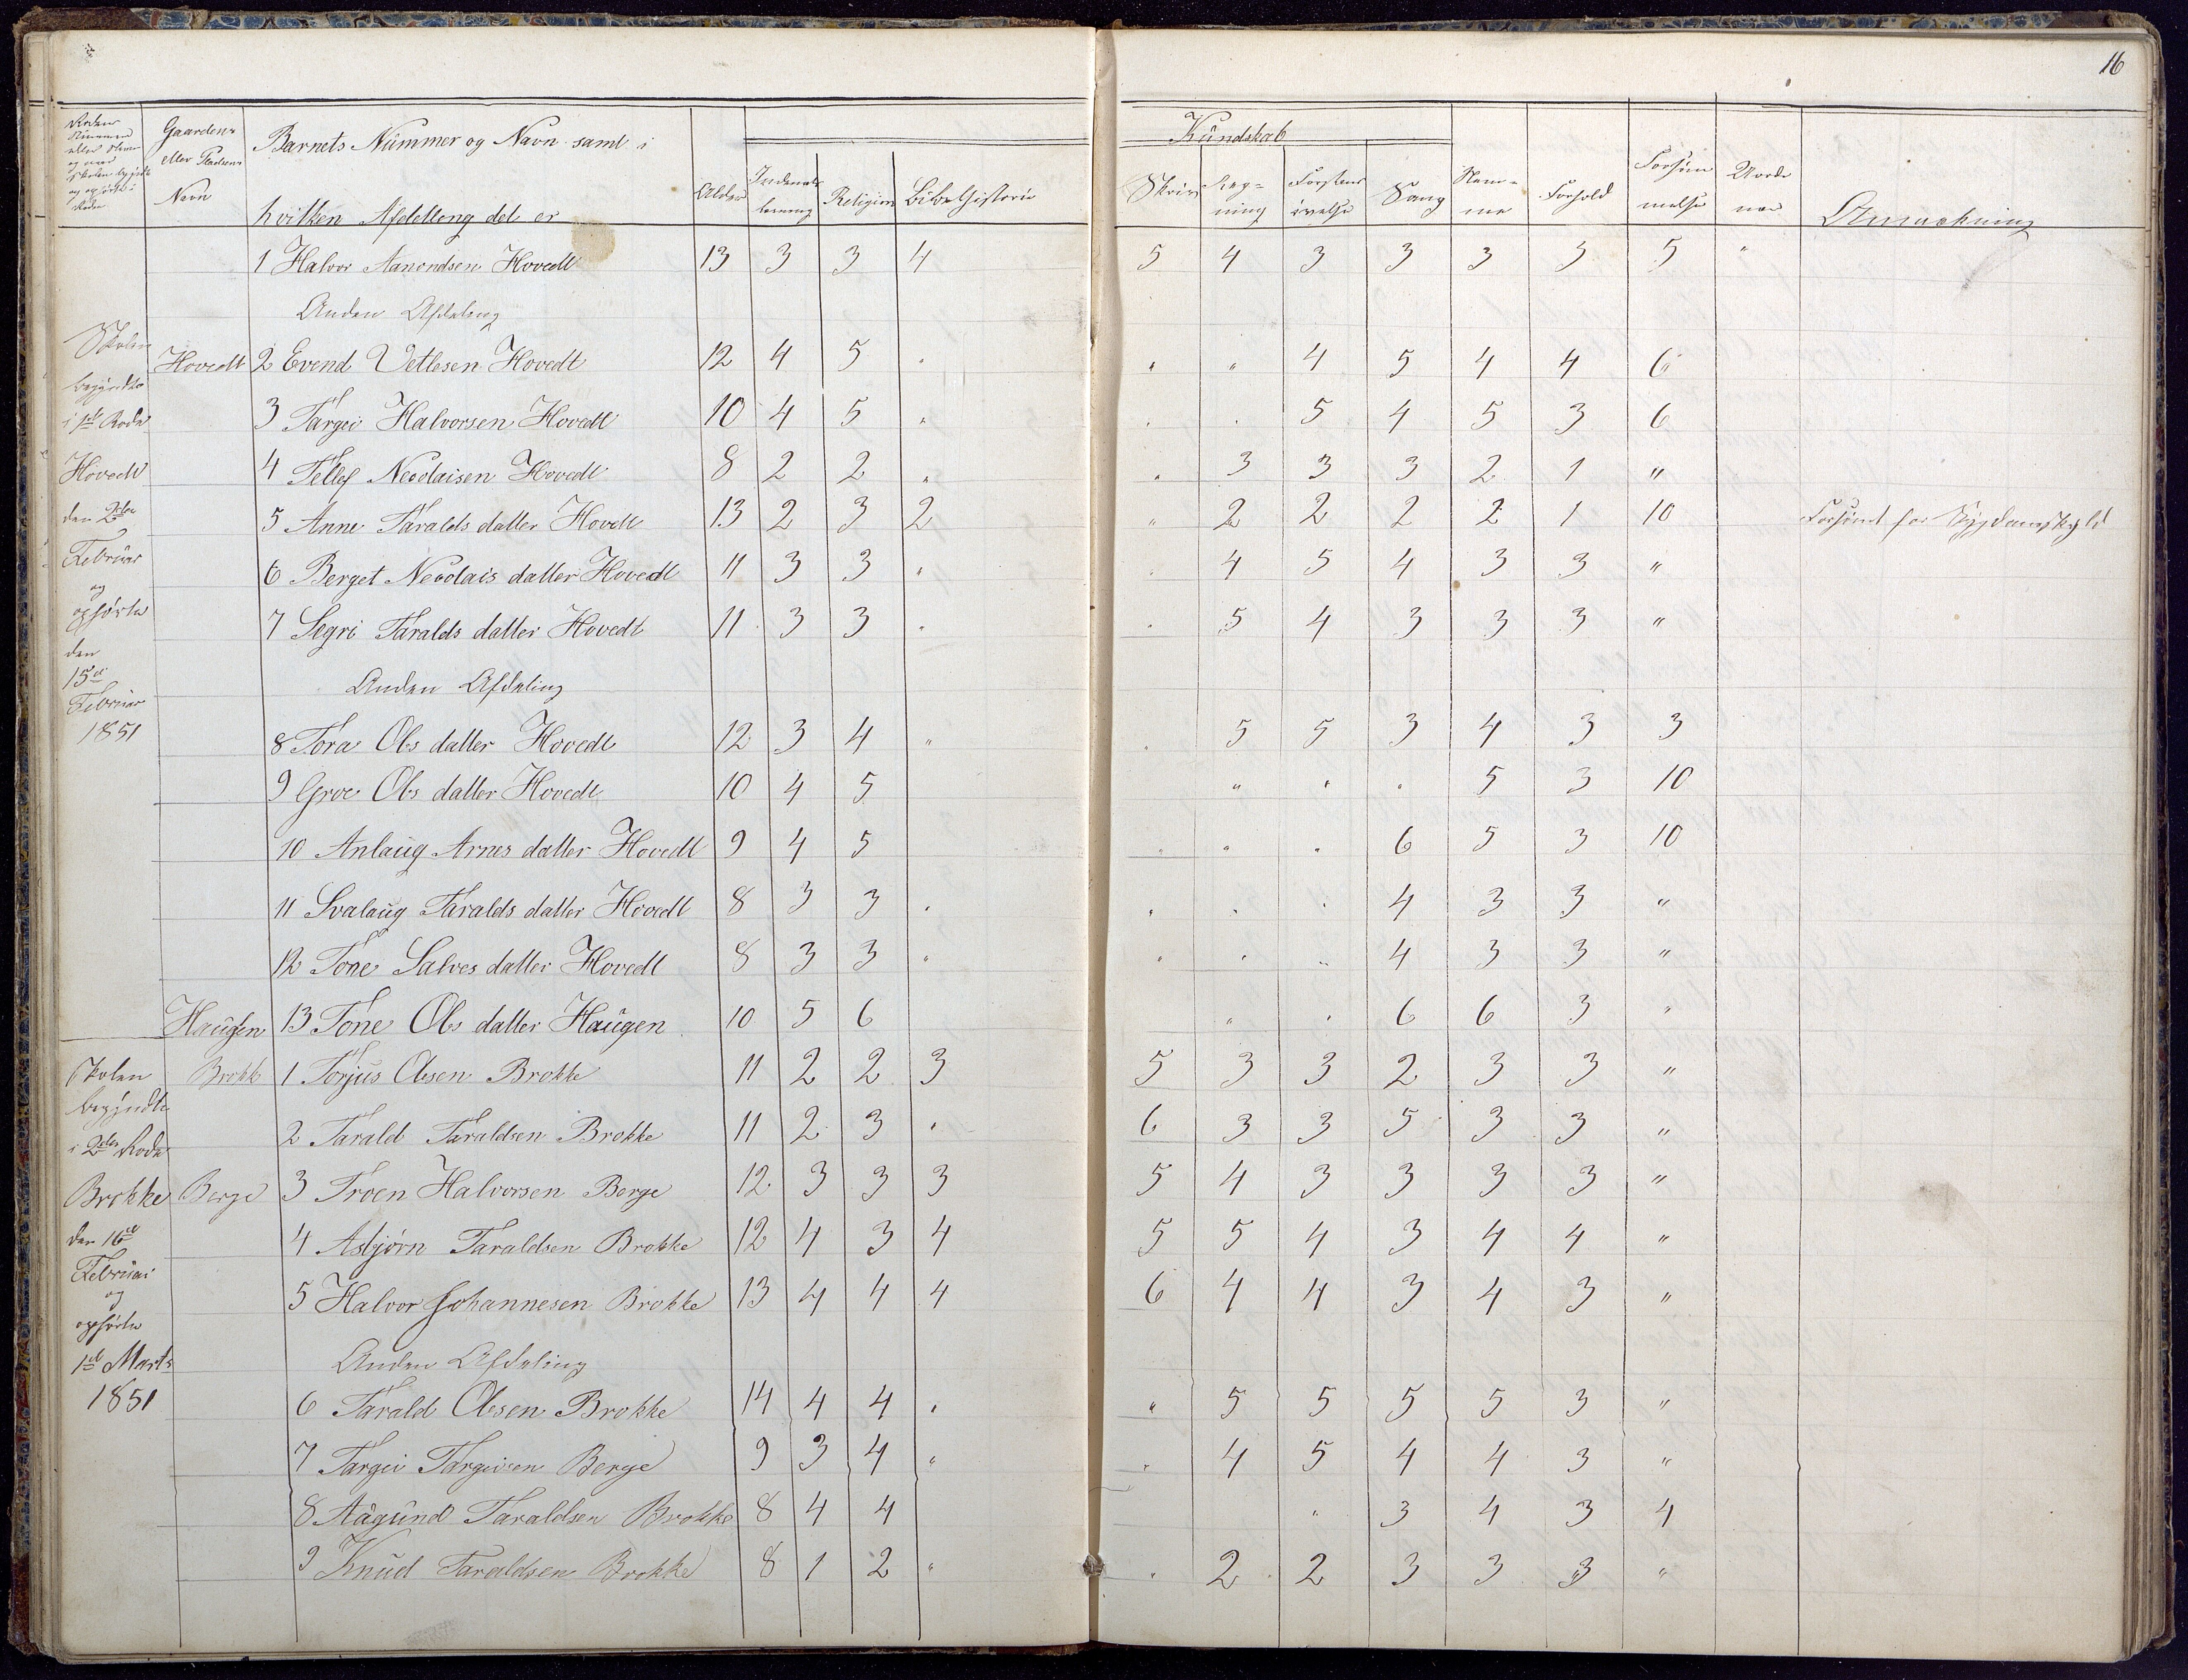 16
Rodens Nummer eller Navn og naar Skolen begyndte og ophørte i Roden | Gaardens eller Pladsens Navn | Barnets Nummer og Navn samt i hvilken Afdelleng det er | Alder | Indenadslæsning | Religion | Bibelhistorie | Kundskab | Skriv | Regning | Forstandsøvelse | Sang | Nemme | Forhold | Forsømmelse | Anmærkning
1 Halvor Aanondsen Hovedt 13 3 3 4 5 4 3 3 3 3 5 "
Anden Afdeling
Skolen begyndte i 1ste Rode Hovedt den 2den Februar og ophørte den 15de Februar 1851
Hovedt 2 Evend Vetlesen Hovedt 12 4 5 " " " 4 5 4 4 6
3 Targei Halvorsen Hovedt 10 4 5 " " " 5 4 5 3 6
4 Tellef Neoolaisen Hovedt 8 2 2 " " 3 3 3 2 1 "
5 Anne Taralds datter Hovedt 13 2 3 2 " 2 2 2 2 1 10 Forsømt for Sygdomsskyld
6 Berget Neoolais datter Hovedt 11 3 3 " " 4 5 4 3 3 "
7 Segri Taralds datter Hovedt 11 3 3 " " 5 4 3 3 3 "
Anden Afdeling
8 Tora Ols datter Hovedt 12 3 4 " " 5 5 3 4 3 3
9 Groe Ols datter Hovedt 10 4 5 " " " 5 3 10
10 Anlaug Arnes datter Hovedt 9 4 5 " " " 6 5 3 10
11 Svalaug Taralds datter Hovedt 8 3 3 " " " " 4 3 3 "
12 Tone Salves datter Hovedt 8 3 3 " " " " 4 3 3 "
Haugen 13 Tone Ols datter Haugen 10 5 6 " " 6 6 3 "
Skolen begyndte i 2den Rode Brokke den 16de Februar og ophørte 1ste Marts 1851
Brokke 1 Torjus Olsen Brokke 11 2 2 3 5 3 3 2 3 3 "
2 Tarald Taraldsen Brokke 11 2 3 " 6 3 3 5 3 3 "
Berge 3 Troen Halvorsen Berge 12 3 3 3 5 4 3 3 3 3 "
4 Asbjørn Taraldsen Brokke 12 4 3 4 5 5 4 3 4 4 "
5 Halvor Johannesen Brokke 13 4 4 4 6 4 4 3 4 3 "
Anden Afdeling
6 Tarald Olesen Brokke 14 4 4 " " 5 5 5 5 3 "
7 Targei Targeisen Berge 9 3 4 " " 4 5 4 4 3 "
8 Aagund Taraldsen Brokke 8 4 4 " 3 4 3 4
9 Knud Taraldsen Brokke 8 1 2 " " 2 2 3 3 3 "